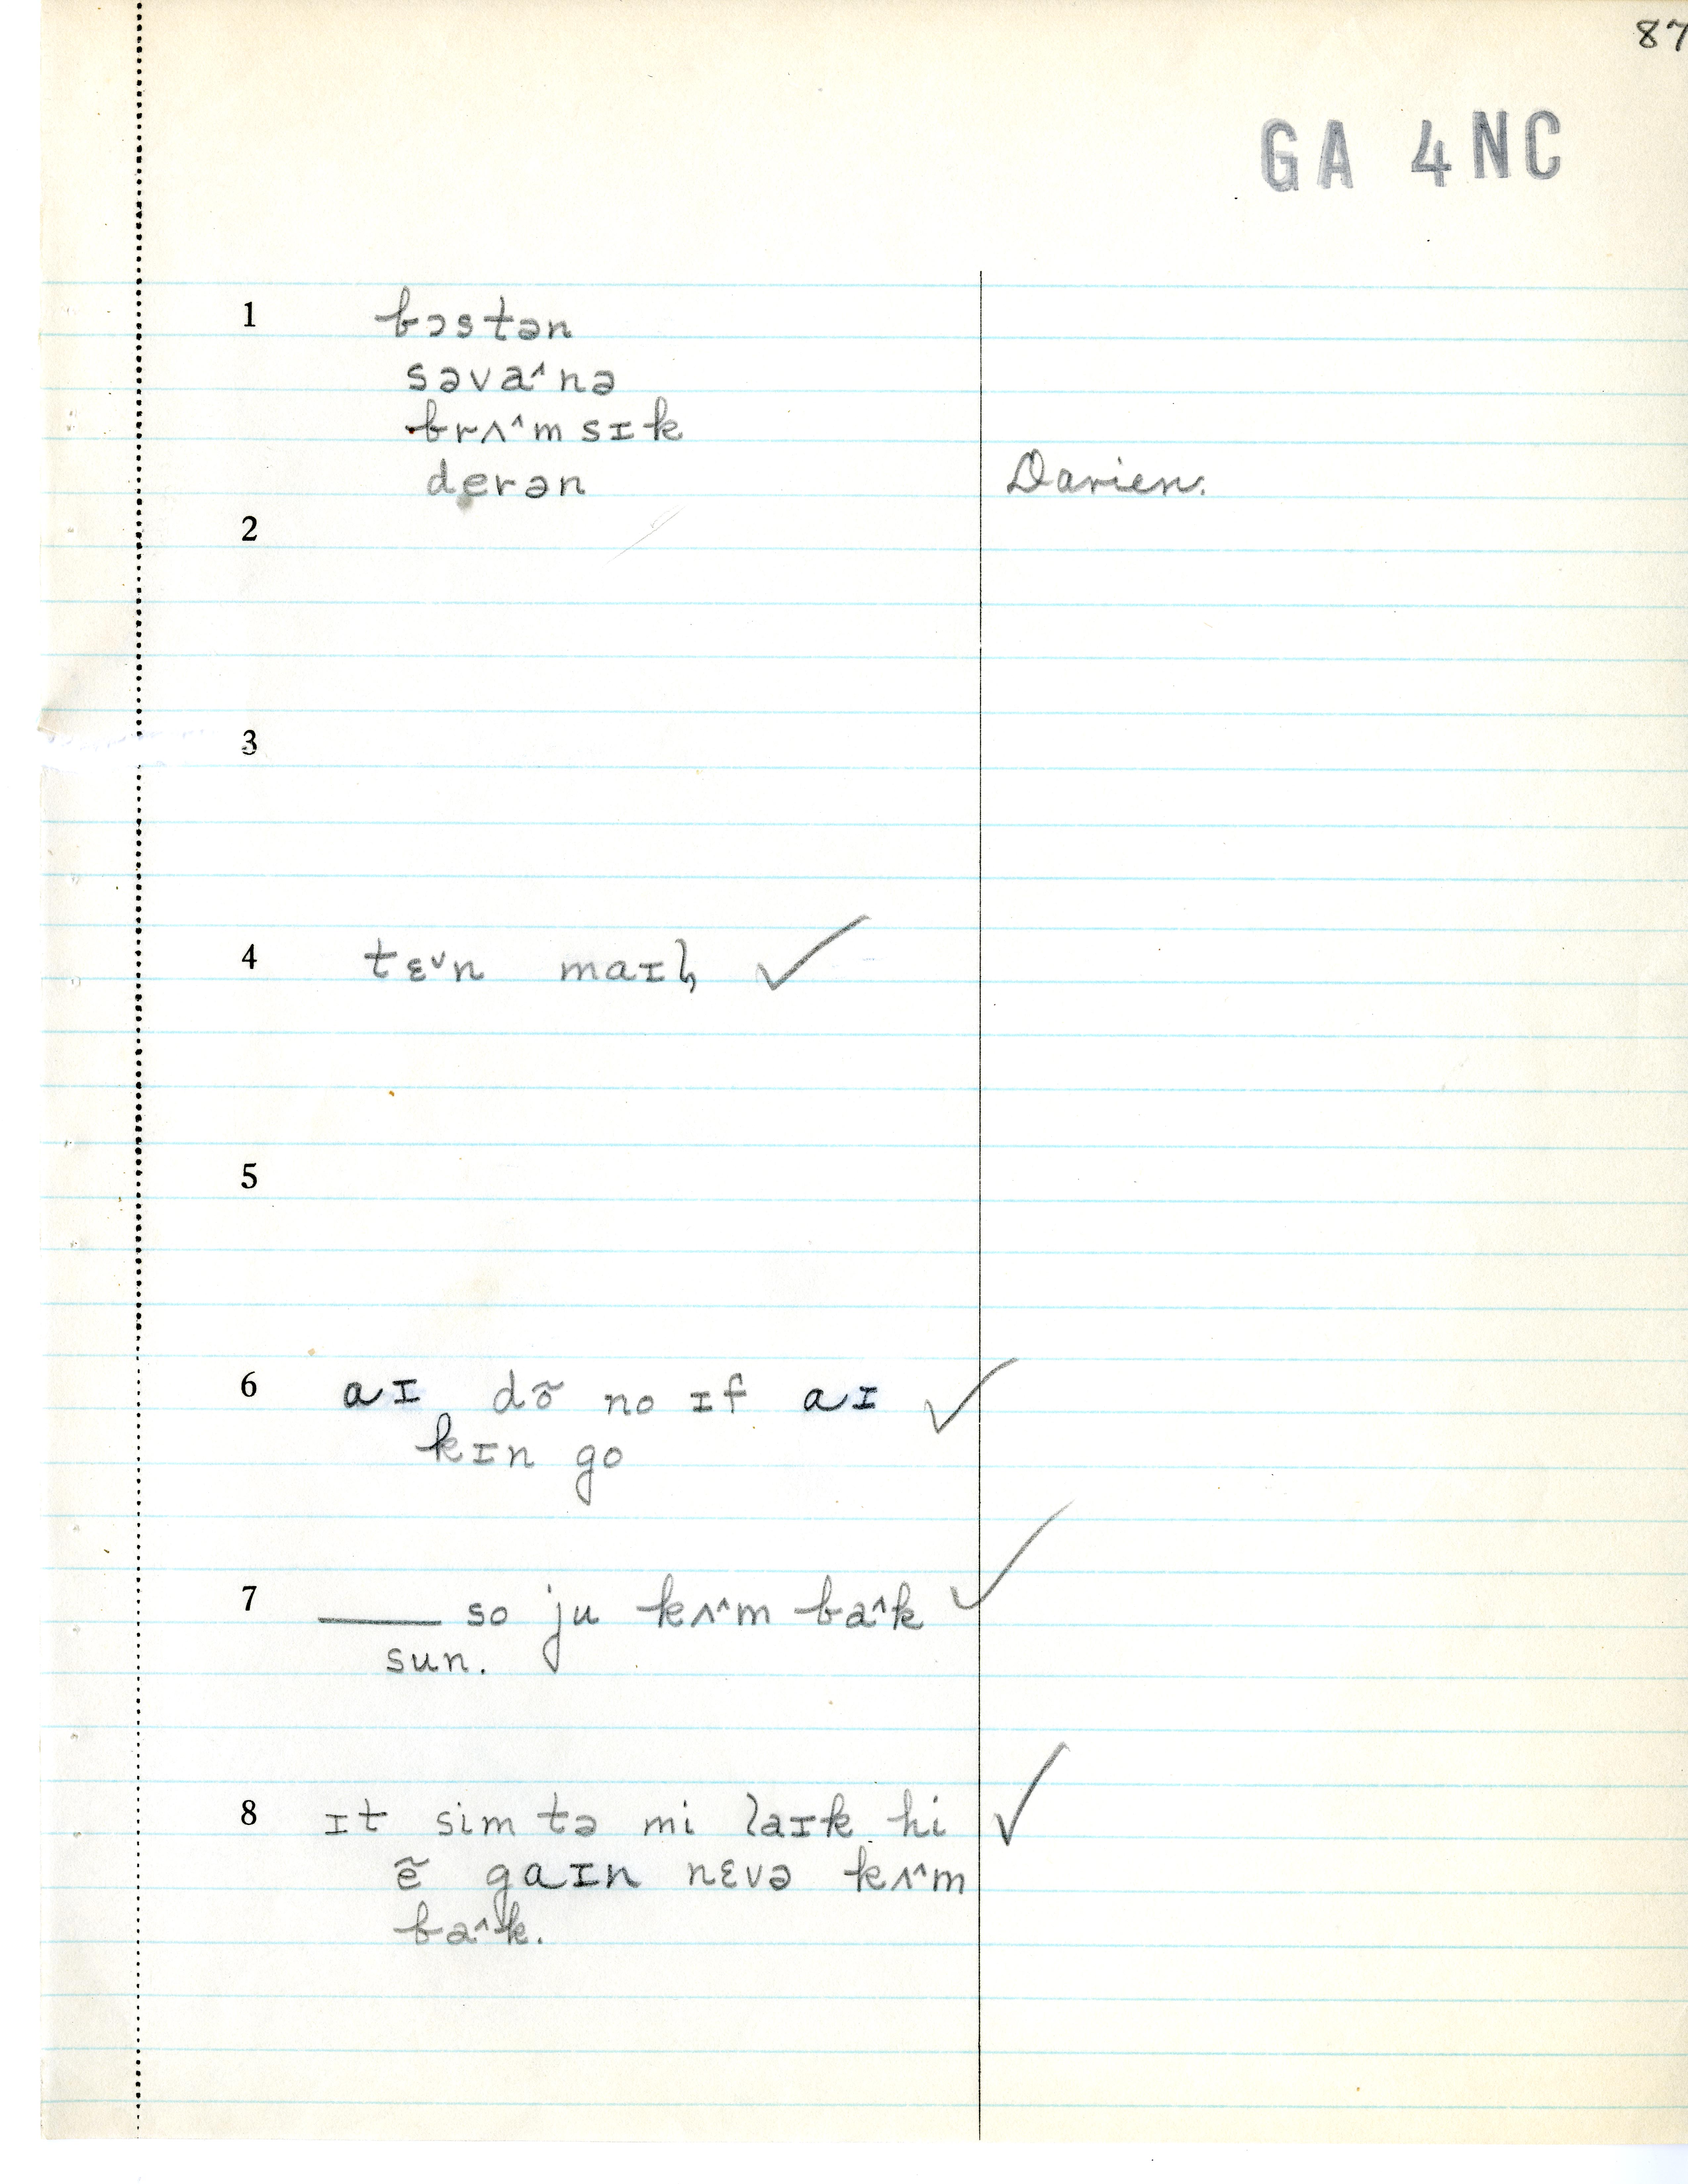 87
GA 4NC
1 bɔstən
səvaˆnə
brʌˆmsɪk
derən Darien.
2
3
4 tɛˇn maɪɫ̡ ✓
5
6 aɪ dõ no ɪf aɪ ✓
kɪn go
7 ____ so ju kʌˆm baˆk ✓
sun.
8 ɪt sim tə mi laɪk hi ✓
ẽ gaɪn nɛvə kʌˆm
baˆk.